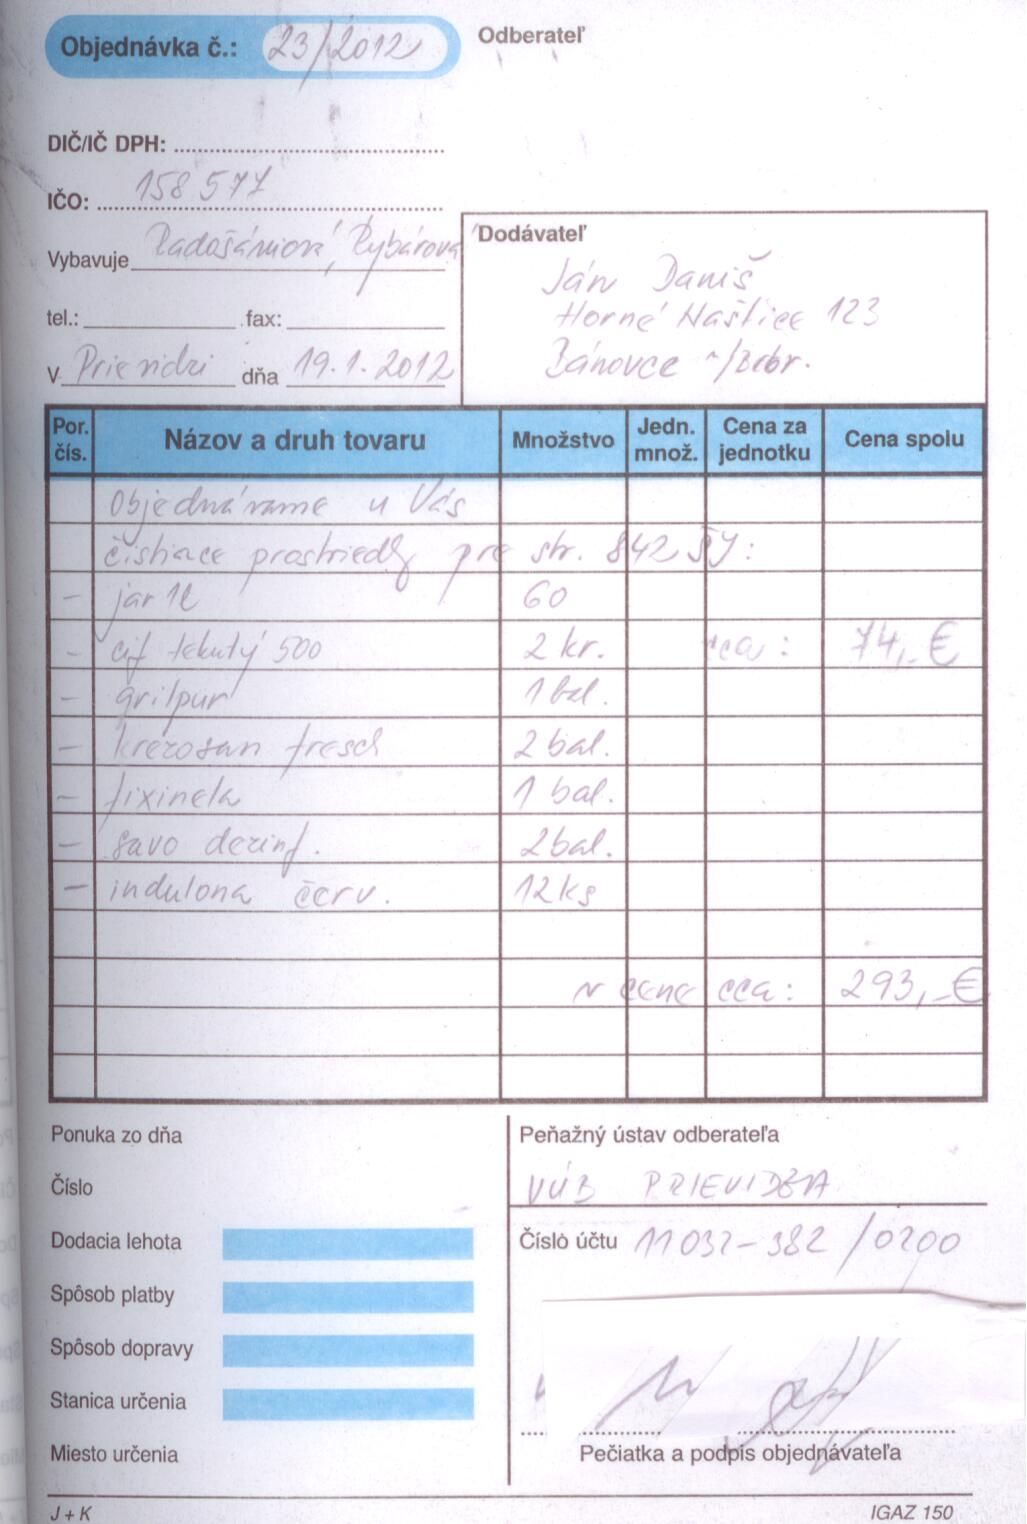 Objednávka č.: 23/2012
Odberateľ
DIČ/IČ DPH:
IČO: 158 577
Vybavuje Radošániová, Rybárová
tel.: fax:
V Prievidzi dňa 19.1.2012
Dodávateľ
Ján Daniš
Horné Naštice 123
Bánovce n/Bebr.
Por. čís. Názov a druh tovaru Množstvo Jedn. množ. Cena za jednotku Cena spolu
Objednávame u Vás
čistiace prostriedky pre str. 842 ŠJ:
- jar 1l 60
- cif tekutý 500 2 kr. cca: 74,-€
- grilpur 1 bal.
- krezosan fresch 2 bal.
- fixinela 1 bal.
- savo dezinf. 2 bal.
- indulona červ. 12 ks
v cene cca: 293,-€
Ponuka zo dňa
Číslo
Dodacia lehota
Spôsob platby
Spôsob dopravy
Stanica určenia
Miesto určenia
Peňažný ústav odberateľa
VÚB PRIEVIDZA
Číslo účtu 11032-382/0200
Pečiatka a podpis objednávateľa
J + K
IGAZ 150